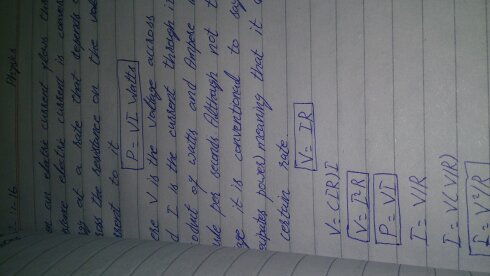 Physics
-16
an electric current passes thro
electric current is conver
at a rate that depends o
the resistance or the vol
to it
P = VI Watts
ere V is the voltage accross
d I is the current through it
oduct of watts and Ampere
ule per seconds Although not t
ge it is conventional to say
power) meaning that it
certain rate. V = IR
V = (IR)I
V = I·R
P = VI
I = V/R
I = V(V/R)
I = V²/R